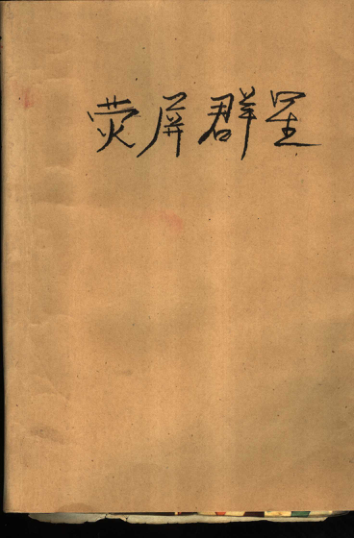 荧屏群星